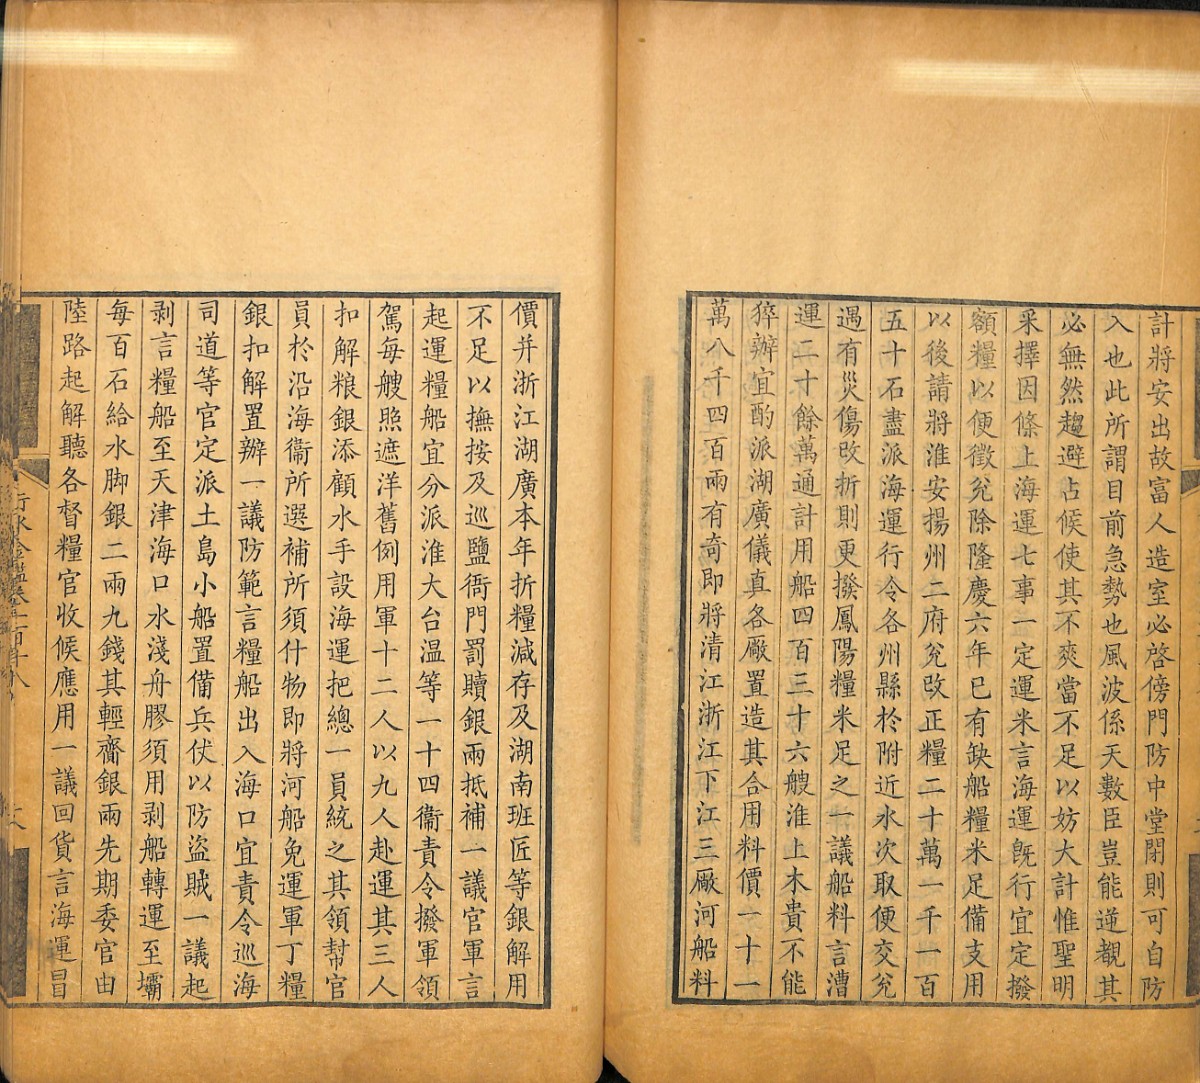 計將安出故富人造室必啓傍門防中堂閉則可自防
入也此所謂目前急勢也風波係天數臣豈能逆覩其
必無然趨避占候使其不爽當不足以妨大計惟聖明
采擇因條上海運七事一定運米言海運旣行宜定撥
額糧以便徵兊除隆慶六年已有缺船糧米足備支用
以後請將淮安揚州二府兊改正糧二十萬一千一百
五十石盡派海運行令各州縣於附近水次取便交兊
遇有災傷改折則更撥鳳陽糧米足之一議船料言漕
運二十餘萬通計用船四百三十六艘淮上木貴不能
猝辦宜酌派湖廣儀真各廠置造其合用料價一十一
萬八千四百兩有奇即將清江浙江下江三廠河船料
價并浙江湖廣本年折糧減存及湖南班匠等銀解用
不足以撫按及巡鹽衙門罰贖銀兩抵補一議官軍言
起運糧船宜分派淮大台温等一十四衞責令撥軍領
駕每艘照遮洋舊例用軍十二人以九人赴運其三人
扣解粮銀添顧水手設海運把總一員統之其領幇官
員於沿海衞所選補所須什物即將河船免運軍丁糧
銀扣解置辦一議防範言糧船出入海口宜責令巡海
司道等官定派土島小船置備兵仗以防盜賊一議起
剥言糧船至天津海口水淺舟膠須用剥船轉運至壩
每百石給水脚銀二兩九錢其輕齎銀兩先期委官由
陸路起解聽各督糧官收候應用一議回貨言海運冒